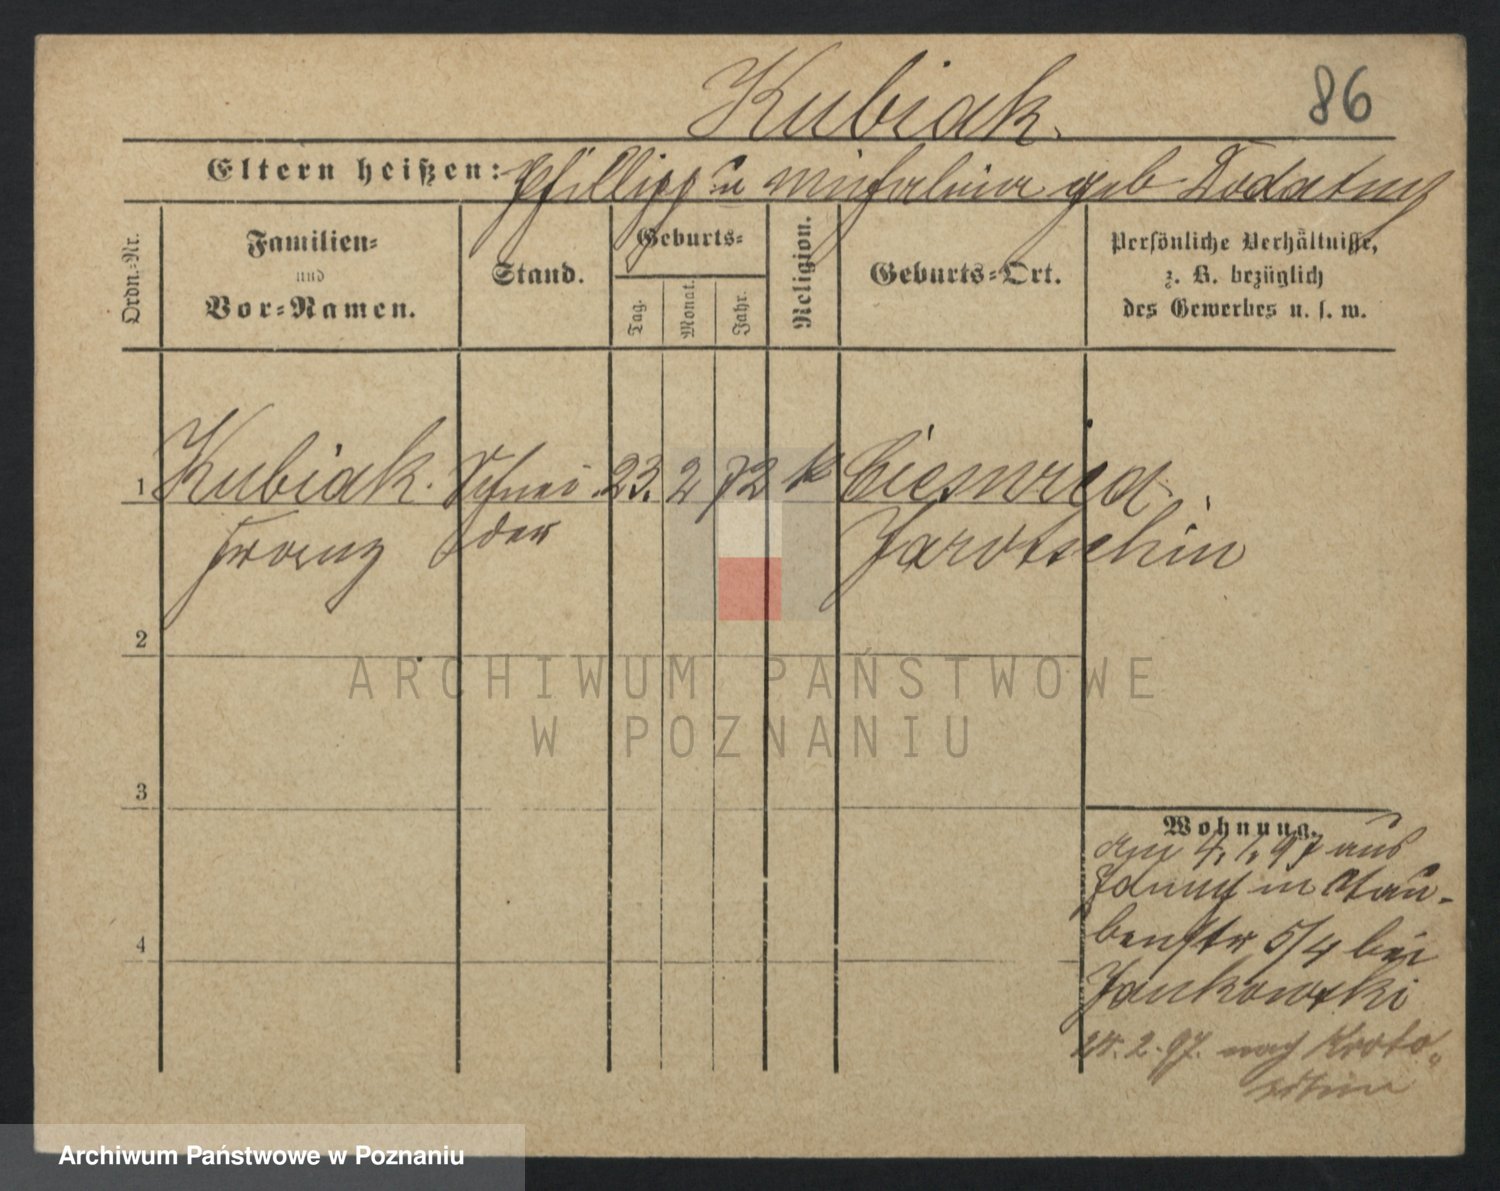 Kubiak.
86
Eltern heißen: Phillipp u Michalina geb
Ordn.-Nr.
Familien-
und
Vor-Namen.
Stand.
Geburts-
Tag.
Monat.
Jahr.
Religion.
Geburts-Ort.
Persönliche Verhältnisse,
z. B. bezüglich
des Gewerbes u. s. w.
1 Kubiak. Schnei 23. 2 72 k
Franz der Jarotschin
2
ARCHIWUM PAŃSTWOWE
W POZNANIU
3
Wohnung.
am 4. 1. 97 aus
in Tau-
benstr 5/4 bei
Jankowski
2. 97. nach Kroto-
schin
4
Archiwum Państwowe w Poznaniu